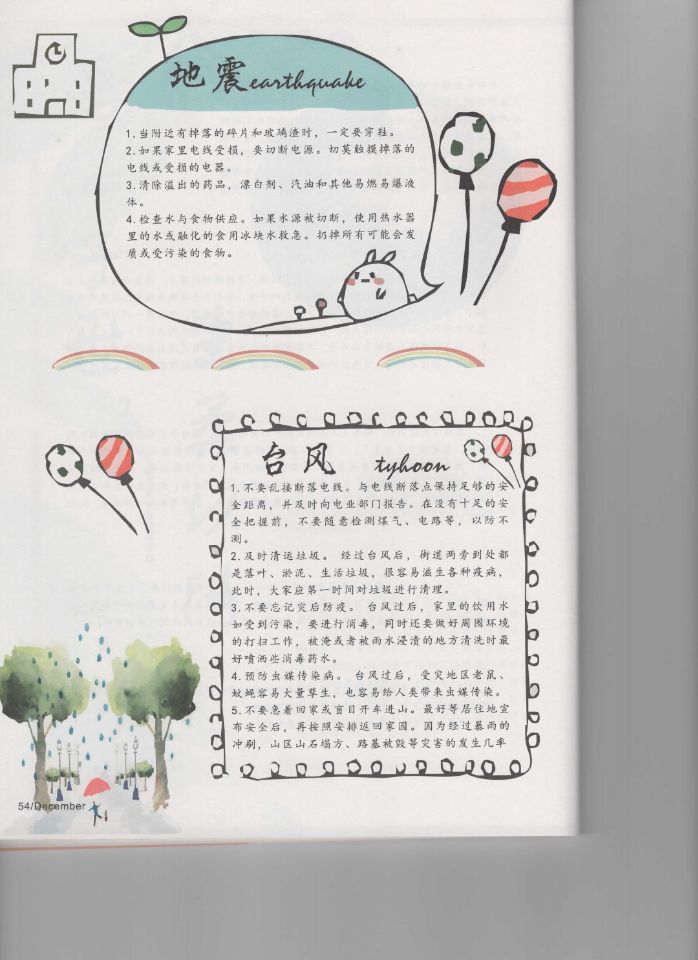 地震earthquake
1.当附近有掉落的碎片和玻璃渣时，一定要穿鞋。
2.如果家里电线受损，要切断电源。切莫触摸掉落的
电线或受损的电器。
3.清除溢出的药品，漂白剂、汽油和其他易燃易爆液
体。
4.检查水与食物供应。如果水源被切断，使用热水器
里的水或融化的食用冰块水救急。扔掉所有可能会发
质或受污染的食物。
台风 tyhoon
1.不要乱接断落电线。与电线断落点保持足够的安
全距离，并及时向电业部门报告。在没有十足的安
全把提前，不要随意检测煤气、电路等，以防不
测。
2.及时清运垃圾。 经过台风后，街道两旁到处都
是落叶、淤泥、生活垃圾，很容易滋生各种疫病，
此时，大家应第一时间对垃圾进行清理。
3.不要忘记灾后防疫。 台风过后，家里的饮用水
如受到污染，要进行消毒，同时还要做好周围环境
的打扫工作，被淹或者被雨水浸渍的地方清洗时最
好喷洒些消毒药水。
4.预防虫媒传染病。 台风过后，受灾地区老鼠、
蚊蝇容易大量孳生，也容易给人类带来虫媒传染。
5.不要急着回家或盲目开车进山。最好等居住地宣
布安全后，再按照安排返回家园。因为经过暴雨的
冲刷，山区山石塌方、路基被毁等灾害的发生几率
54/December